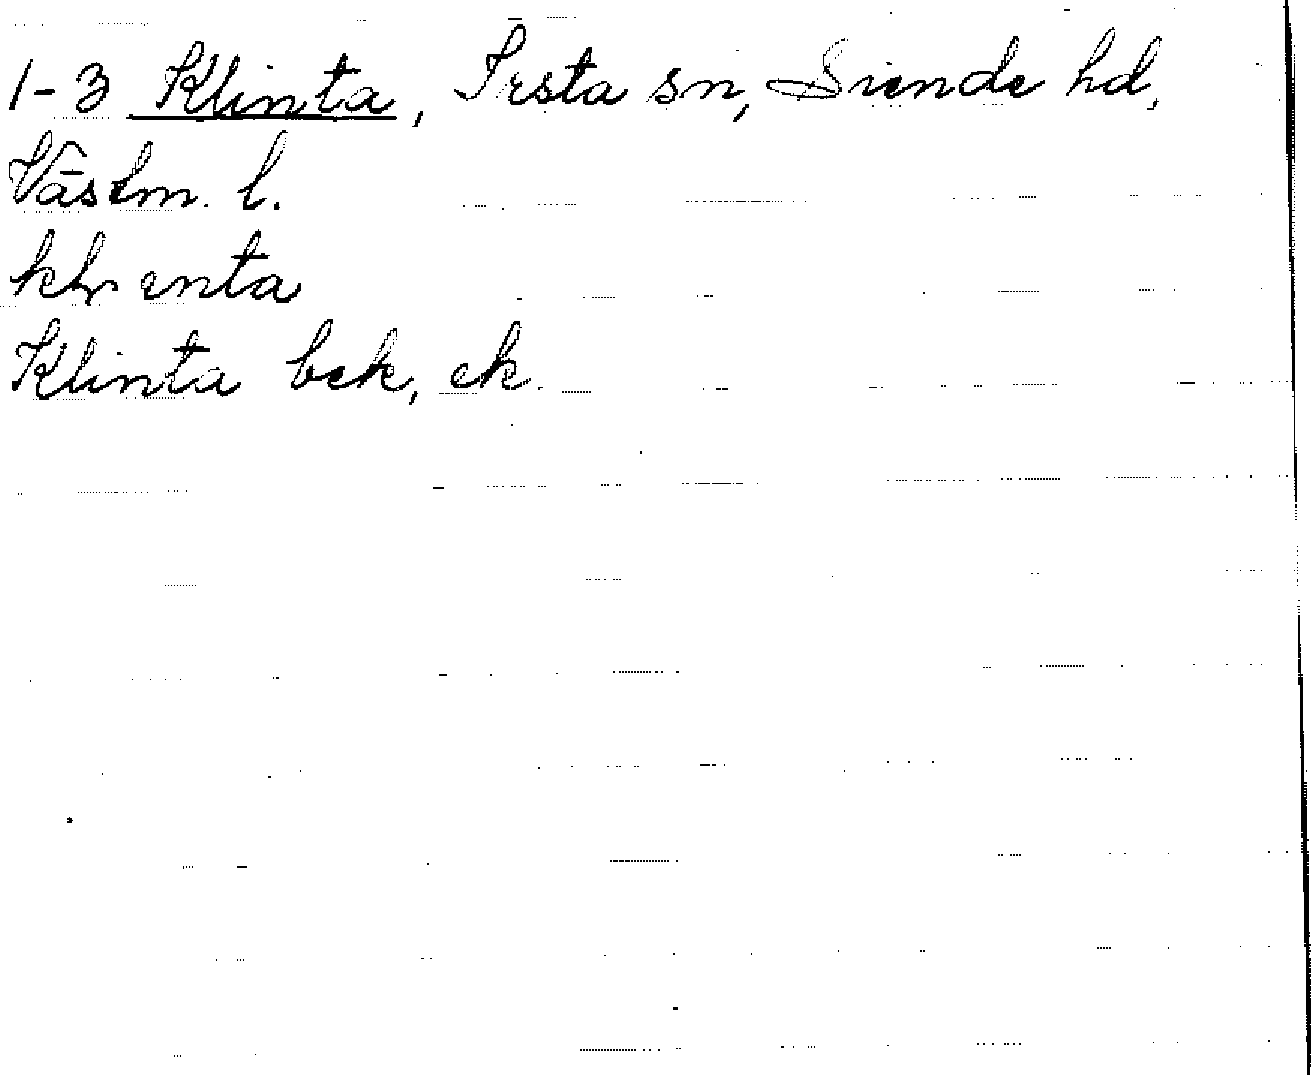 1-3 Klinta, Irsta sn, Siende hd,
Västm. l.
klænta
Klinta bek, ek.